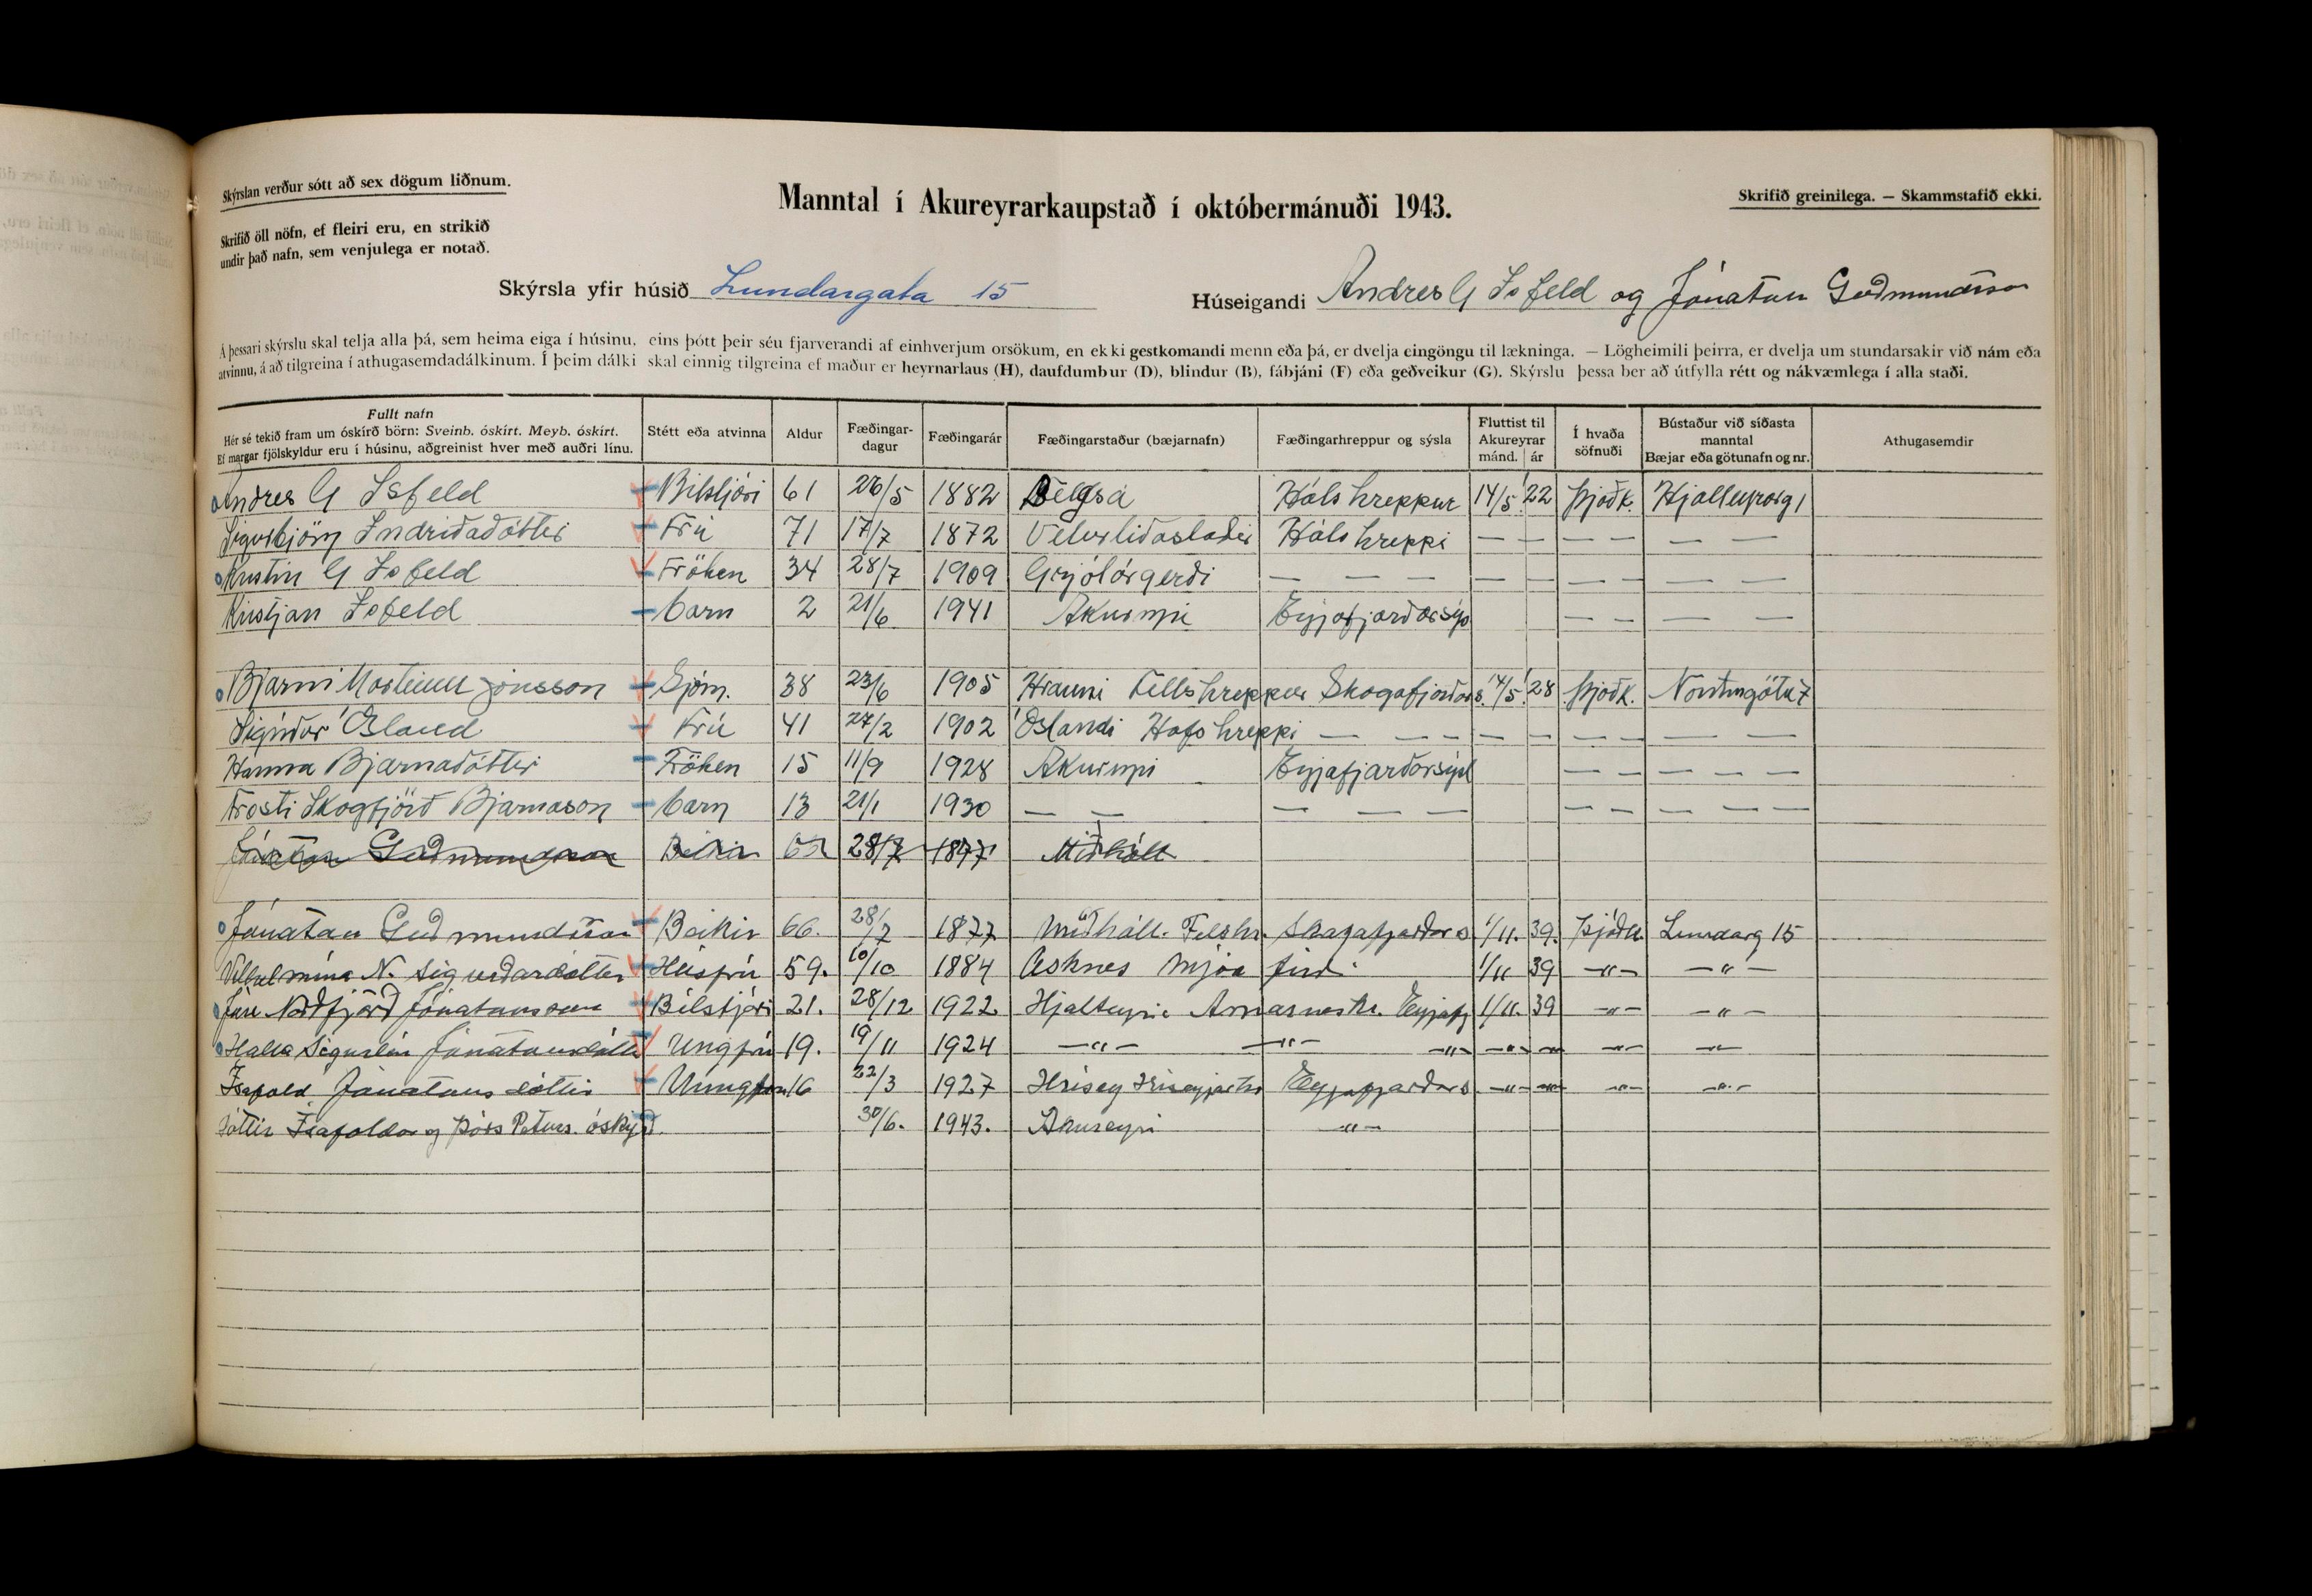 Skýrslan verður sótt að sex dögum liðnum.
Skrifið öll nöfn, ef fleiri eru, en strikið
undir það nafn, sem venjulega er notað.
Manntal í Akureyrarkaupstað í októbermánuði 1943.
Skrifið greinilega. — Skammstafið ekki.
Skýrsla yfir húsið Lundargata 15
Húseigandi Andres G Isfeld og Jónatan Guðmundsson
Á þessari skýrslu skal telja alla þá, sem heima eiga í húsinu, eins þótt þeir séu fjarverandi af einhverjum orsökum, en ekki gestkomandi menn eða þá, er dvelja eingöngu til lækninga. — Lögheimili þeirra, er dvelja um stundarsakir við nám eða
atvinnu, á að tilgreina í athugasemdadálkinum. Í þeim dálki skal einnig tilgreina ef maður er heyrnarlaus (H), daufdumbur (D), blindur (B), fábjáni (F) eða geðveikur (G). Skýrslu þessa ber að útfylla rétt og nákvæmlega í alla staði.
Fullt nafn
Hér sé tekið fram um óskírð börn: Sveinb. óskírt. Meyb. óskírt.
Ef margar fjölskyldur eru í húsinu, aðgreinist hver með auðri línu.
Stétt eða atvinna
Aldur
Fæðingar-
dagur
Fæðingarár
Fæðingarstaður (bæjarnafn)
Fæðingarhreppur og sýsla
Fluttist til
Akureyrar
mánd. ár
Í hvaða
söfnuði
Bústaður við síðasta
manntal
Bæjar eða götunafn og nr.
Athugasemdir
Andres G Isfeld Bilstjóri 61 26/5 1882 Belgsá Háls hreppur 14/5 22 Þjoðk. Hjalteyrarg 1
Sigurbjörg Indriðadóttir Frú 71 17/7 1872 Veturliðastaðir Háls hreppi — — — — — —
Kristin G Isfeld Fröken 34 28/7 1909 Grjótárgerði — — — — — — — — —
Kristjan Isfeld barn 2 21/6 1941 Akureyri Eyjafjarðarsýs — — — —
Bjarni Jónsson Sjóm. 38 23/6 1905 Hrauni Fellshreppur Skagafjarðars. 14/5 28 Þjoðk. Norðurgötu 7
Sigríður Ósland Frú 41 27/2 1902 Óslandi Hofshreppi — — — — — — — — —
Hanna Bjarnadóttir Fröken 15 11/9 1928 Akureyri Eyjafjarðarsýsl — — — — —
Frosti Skagfjörð Bjarnason barn 13 21/1 1930 — — — — — — — — — —
Jónatan Guðmundsson Beikir 28/7 1877 Miðhóll
Jónatan Guðmundsson Beikir 66. 28/7 1877 Miðhóll. Felshr. Skagafjarðars 1/11. 39. Þjóðk. Lundarg 15
Vilhelmína N. Sigurðardóttir Húsfrú 59. 10/10 1884 Asknes Mjóafirði 1/11 39 —"— —"—
Norðfjörd Jónatansson Bílstjóri 21. 28/12 1922 Hjalteyri Arnarneshr. Eyjafj 1/11. 39 —"— —"—
Halla Sigurlín Jónatansdóttir Ungfrú 19. 19/11 1924 —"— —"— —"— —"— —"— —"— —"—
Ísafold Jónatansdóttir Unngfrú 16 22/3 1927 Hrísey Hríseyjarhr Eyjafjarðars —"— —"— —"— —"—
Dóttir Ísafoldar og Þórs Peturs. óskírð. 30/6. 1943. Akureyri —"—